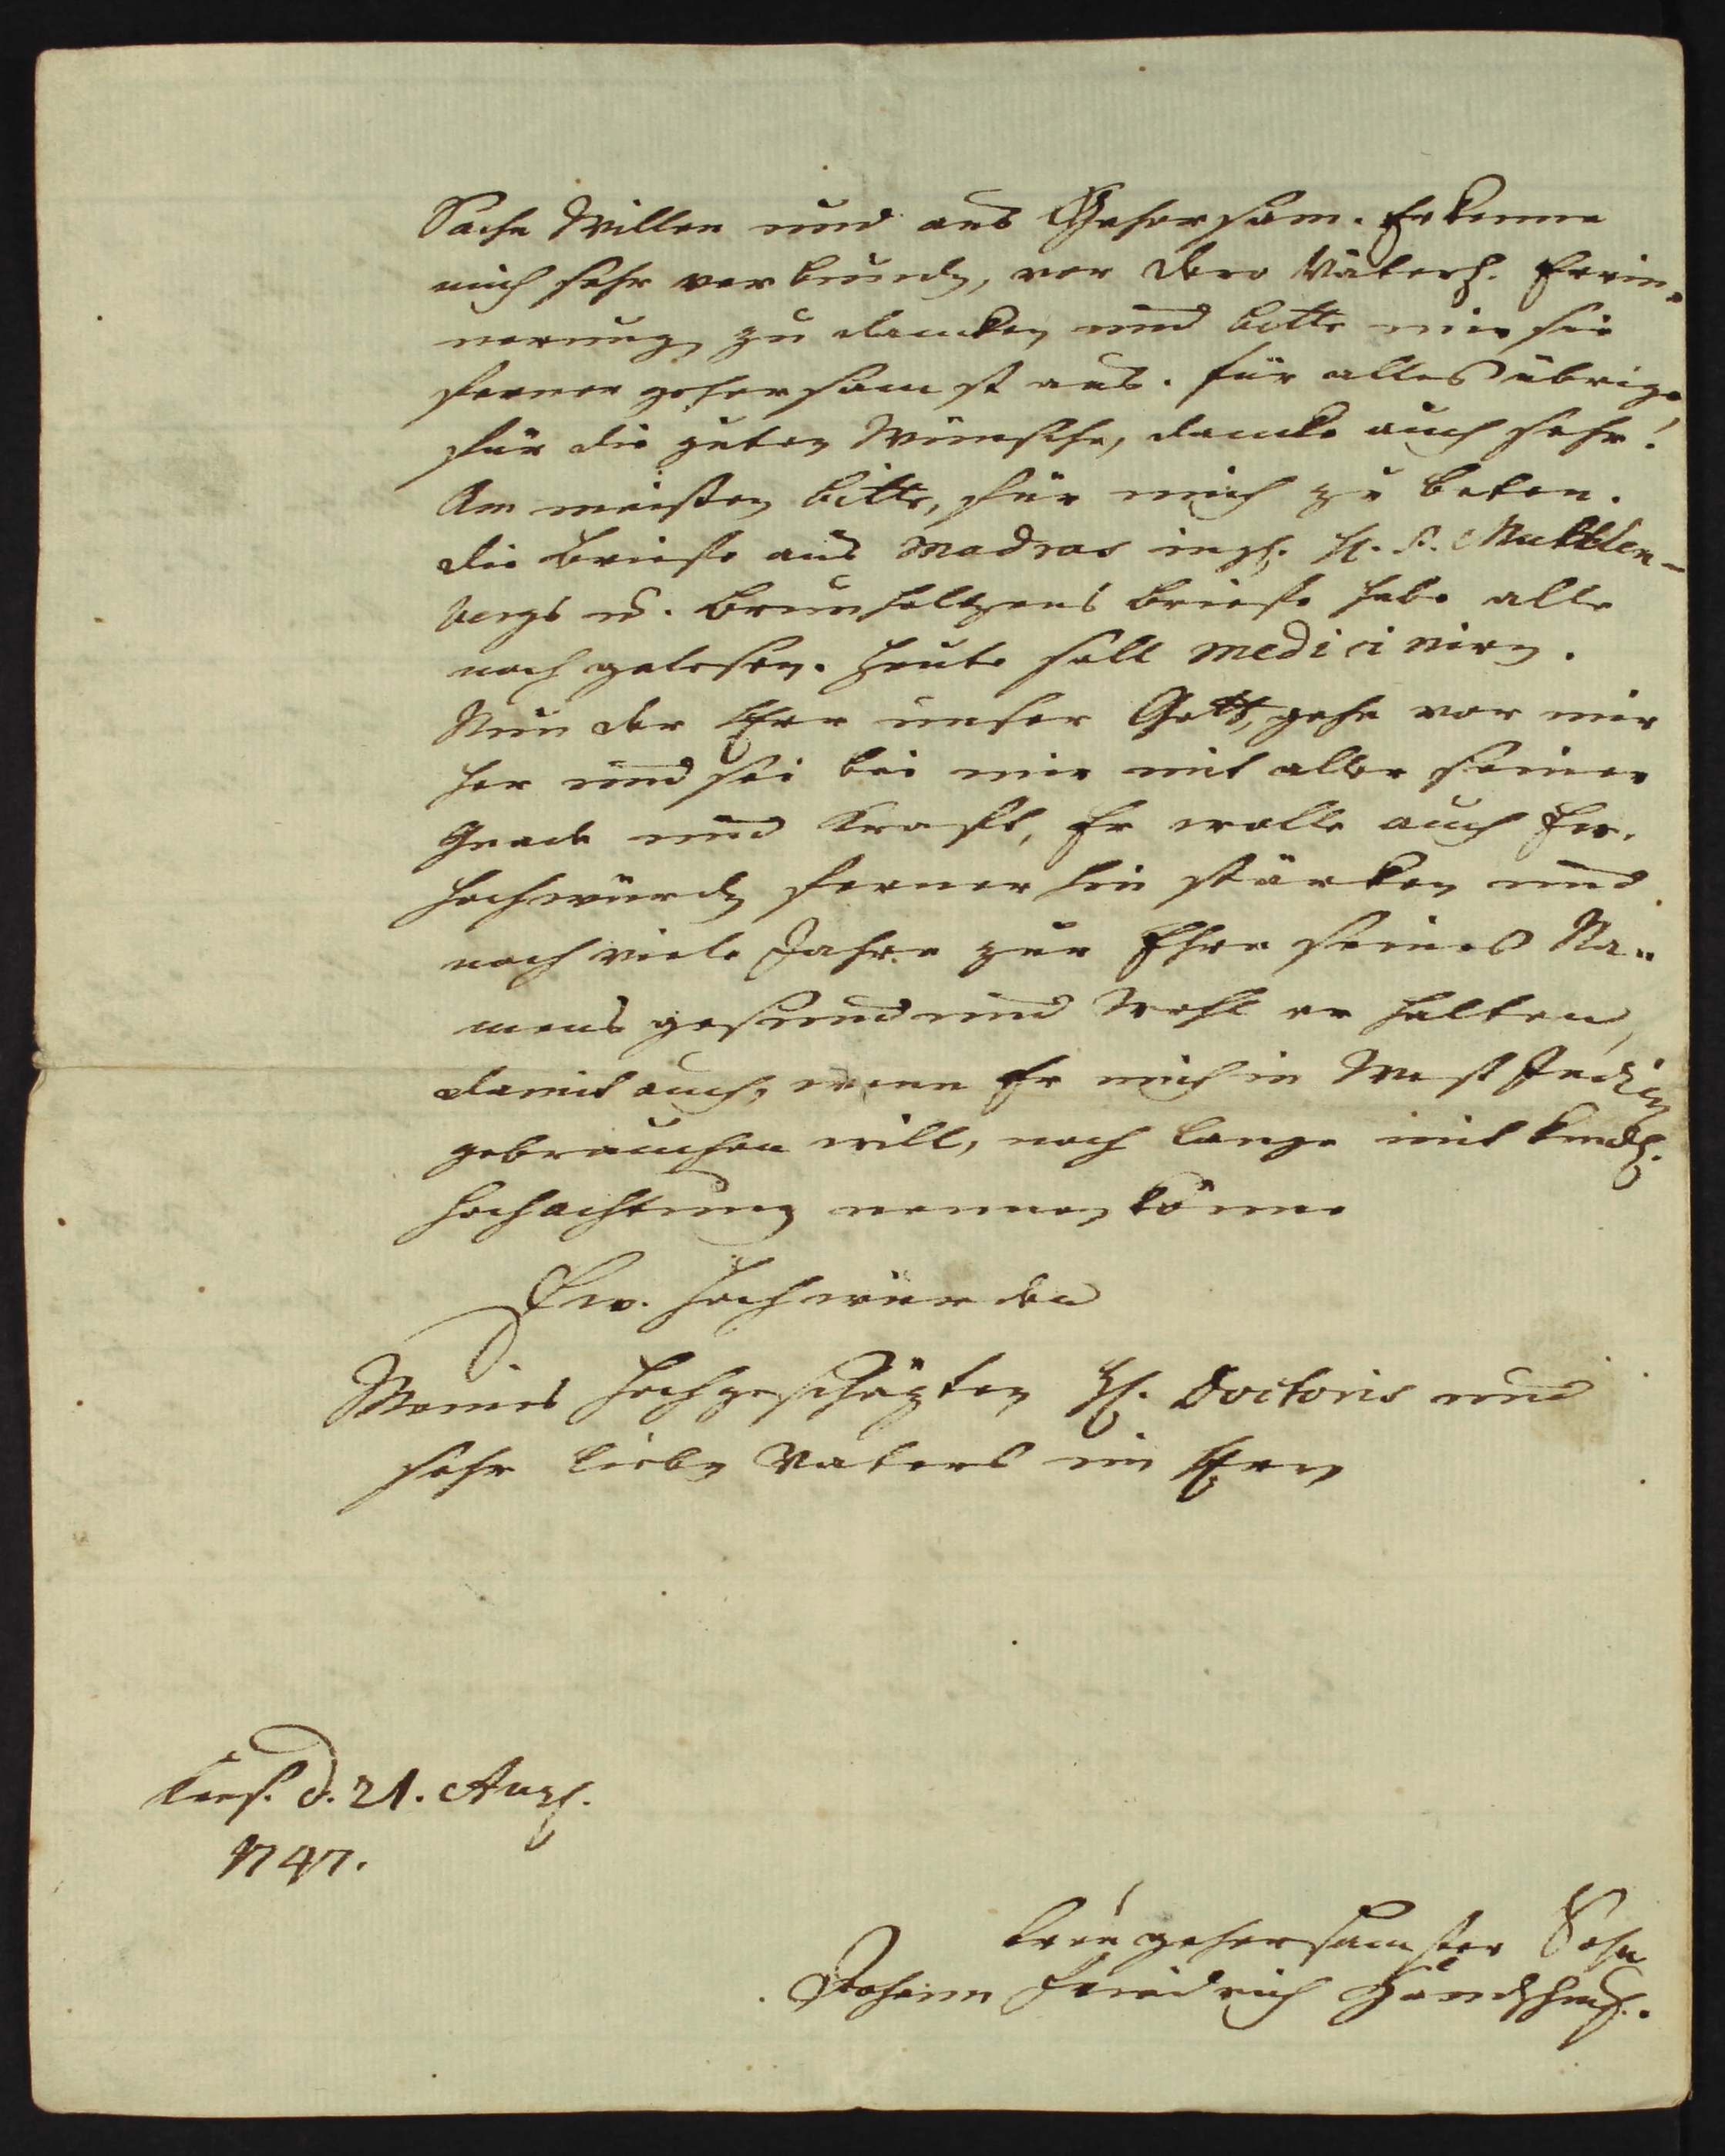 Sache Willen und aus Gehorsam. Erkenne
mich sehr verbunden, vor dero Väterl. Erin-
nerung zu dancken und bitte mir sie
ferner gehorsamst aus. für alles übrige
für die guten Wünsche, dancke auch sehr!
Am meisten bitte, für mich zu beten.
die Briefe aus Madras ingl. H. P. Muhlen-
bergs u. Brunholtzens Briefe habe alle
noch gelesen. Heute soll mediciniren.
Nun der Herr unser Gott, gehe vor mir
her und sei bei mir mit aller seiner
Gnade und Krafft, Er wolle auch Ew.
Hochwürden fernerhin stärken und
noch viele Jahre zur Ehre seines Na-
mens gesund und Wohl erhalten,
damit auch, wenn Er mich in West Indien
gebrauchen will, noch lange mit kindl.
Hochachtung nennen könne
Ew. Hochwürden
Meines Hochgeschäzten H. Doctoris und
sehr lieben Vaters im Herrn
d. 21. Aug.
1747.
treu gehorsamster Sohn
Johann Friedrich Handschuch.